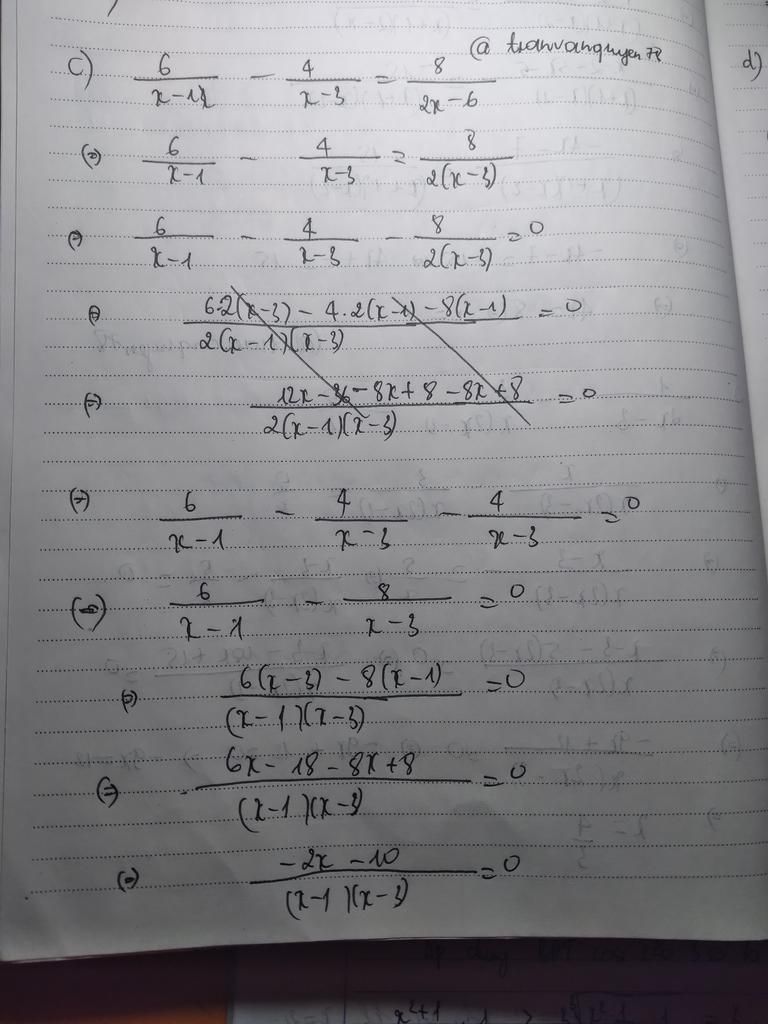 @ tranvanquyen78
c) 6/(x-1) - 4/(x-3) = 8/(2x-6)
d)
(=) 6/(x-1) - 4/(x-3) = 8/(2(x-3))
(=) 6/(x-1) - 4/(x-3) - 8/(2(x-3)) = 0
(=) (6.2(x-3) - 4.2(x-1) - 8(x-1))/(2(x-1)(x-3)) = 0
(=) (12x-36-8x+8-8x+8)/(2(x-1)(x-3)) = 0
(=) 6/(x-1) - 4/(x-3) - 4/(x-3) = 0
(=) 6/(x-1) - 8/(x-3) = 0
(=) (6(x-3) - 8(x-1))/((x-1)(x-3)) = 0
(=) (6x-18-8x+8)/((x-1)(x-3)) = 0
(=) (-2x-10)/((x-1)(x-3)) = 0